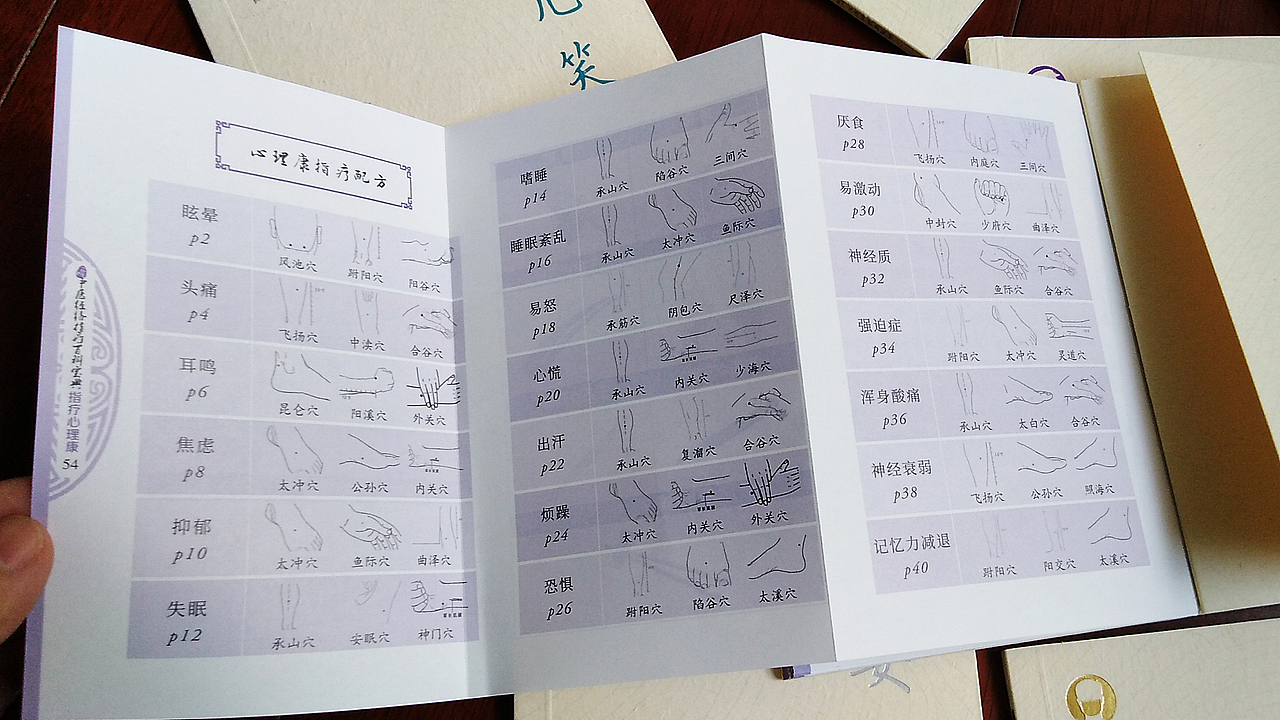 笑
心理康指疗配方
眩晕
p2
风池穴 跗阳穴 阳谷穴
头痛
p4
飞扬穴 中渎穴 合谷穴
耳鸣
p6
昆仑穴 阳溪穴 外关穴
焦虑
p8
太冲穴 公孙穴 内关穴
抑郁
p10
太冲穴 鱼际穴 曲泽穴
失眠
p12
承山穴 安眠穴 神门穴
指疗心理康
54
嗜睡
p14
承山穴 陷谷穴 三间穴
睡眠紊乱
p16
承山穴 太冲穴 鱼际穴
易怒
p18
承筋穴 阴包穴 尺泽穴
心慌
p20
承山穴 内关穴 少海穴
出汗
p22
承山穴 复溜穴 合谷穴
烦躁
p24
太冲穴 内关穴 外关穴
恐惧
p26
跗阳穴 陷谷穴 太溪穴
厌食
p28
飞扬穴 内庭穴 三间穴
易激动
p30
中封穴 少府穴 曲泽穴
神经质
p32
承山穴 鱼际穴 合谷穴
强迫症
p34
跗阳穴 太冲穴 灵道穴
浑身酸痛
p36
承山穴 太白穴 合谷穴
神经衰弱
p38
飞扬穴 公孙穴 照海穴
记忆力减退
p40
跗阳穴 阳交穴 太溪穴